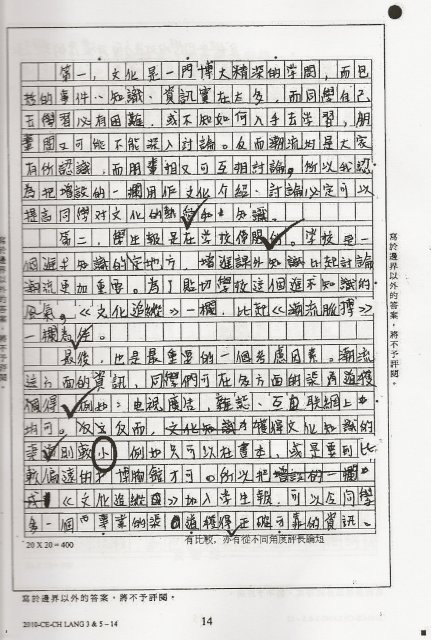 第一，文化是一門博大精深的学問，而包
的事件、知識、資訊實在太多，而同學自己
去學習似有困難，或不知如何入手去学習，朋
輩間又可能不能深入討論。反而潮流均是大家
有所認識，而朋輩相又可互相討論。所以我認
為把增設的一欄用作文化介紹、討論必定可以
提高同學对文化的熱愛和知識。
第二，學生報是在学校傳閱的。学校是一
個進步知識的地方，增進課外知識比起討論
潮流更加重要。為了貼切學校這個進不知識的
風氣，《文化追縱》一欄，比起《潮流脈搏》
一欄為佳。
最後，也是最重要的一個考慮因素。潮流
這方面的資訊，同學們可在多方面的渠道獲
得，例如：電視廣告，雜誌、互聯網上
均可。反而，文化知識的
渠道則較小，例如只可以在書本，或是要到比
較偏遠的博物館才可。所以把
《文化追縱》加入学生報，可以令同學
多一個專業的渠道獲得正確可靠的資訊。
20 X 20 = 400
有比較，亦有從不同角度評長論短
寫於邊界以外的答案，將不予評閱。
寫於邊界以外的答案，將不予評閱。
寫於邊界以外的答案，將不予評閱。
2010-CE-CH LANG 3 & 5－14
14